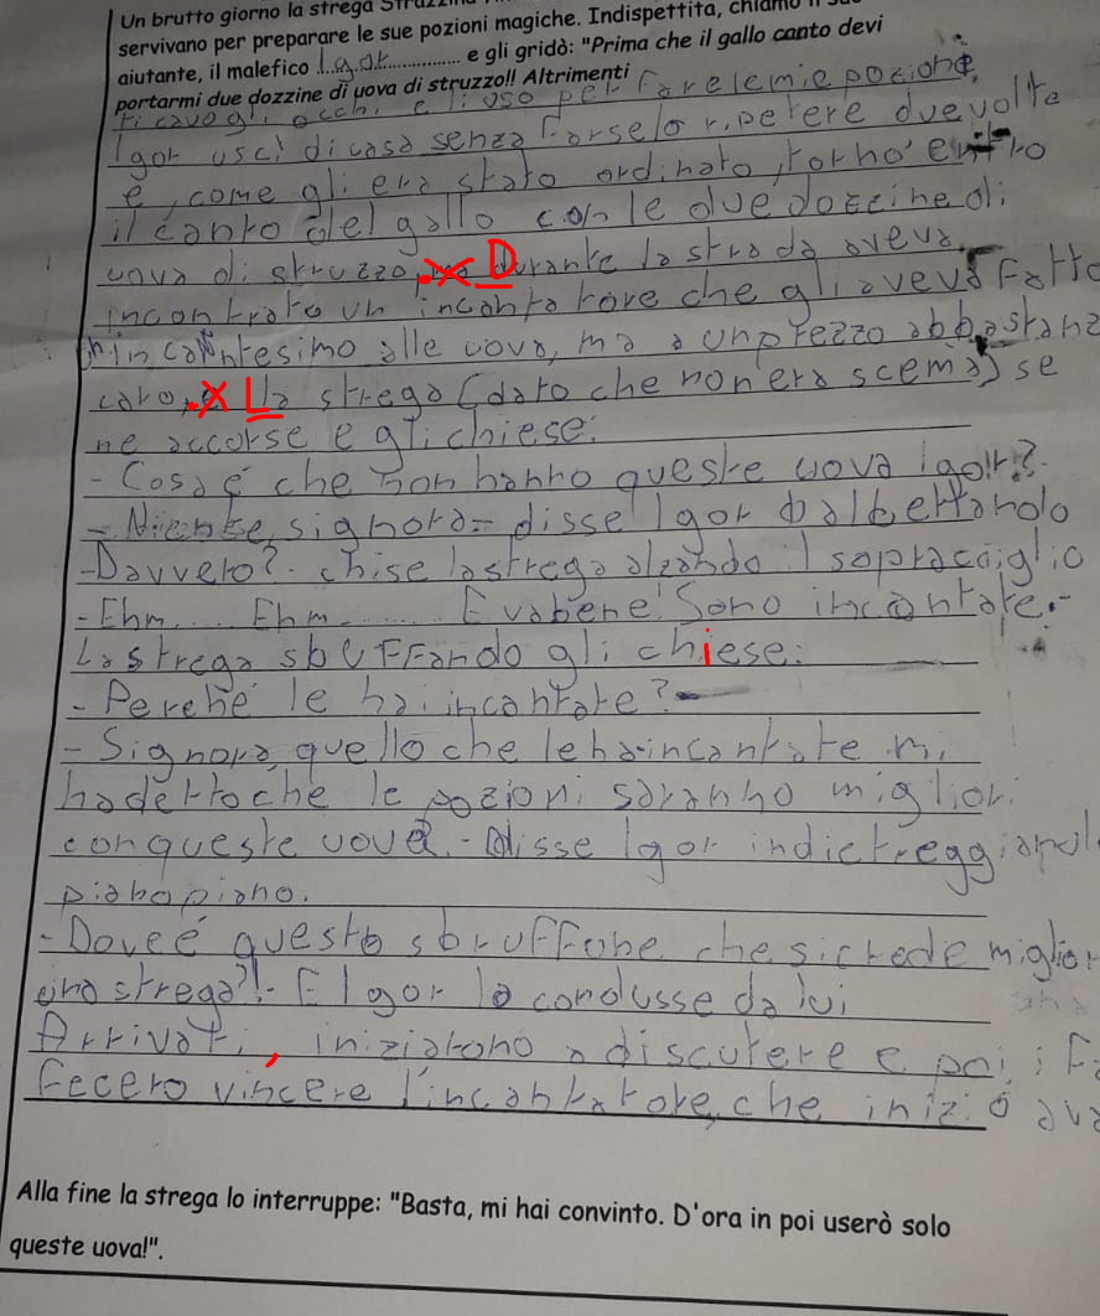 Un brutto giorno la strega
servivano per preparare le sue pozioni magiche. Indispettita, chiamò il suo
aiutante, il malefico Igor e gli gridò: "Prima che il gallo canto devi
portarmi due dozzine di uova di struzzo!! Altrimenti
ti cavo gli occhi e li uso per fare le mie pozioni.
Igor uscì di casa senza farselo ripetere due volte
e, come gli era stato ordinato, tornò entro
il canto del gallo con le due dozzine di
uova di struzzo. X Durante la strada aveva
incontrato un incantatore che gli aveva fatto
un incantesimo alle uova, ma a un prezzo abbastanz
caro. X La strega (dato che non era scema) se
ne accorse e gli chiese:
- Cosa é che non hanno queste uova Igor?-
- Niente, signora- disse Igor balbettando
- Davvero?- chise la strega alzando il sopracciglio
- Ehm.... Ehm....... E va bene! Sono incantate.-
La strega sbuffando gli chiese:
- Perché le hai incantate?-
- Signora, quello che le ha incantate mi
ha detto che le pozioni saranno migliori
con queste uova.- disse Igor indietreggiand
piano piano.
- Dove é questo sbruffone che si crede miglior
una strega?!- E Igor la condusse da lui
Arrivati, iniziarono a discutere e poi
fecero vincere l'incantatore, che iniziò
Alla fine la strega lo interruppe: "Basta, mi hai convinto. D'ora in poi userò solo
queste uova!".